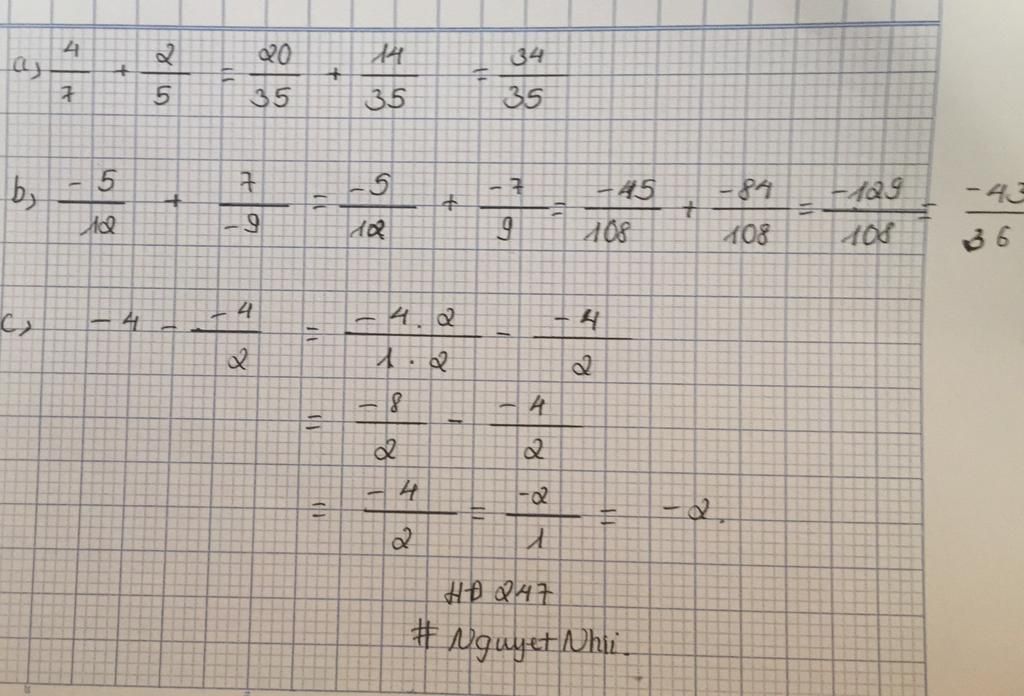 a, 4/7 + 2/5 = 20/35 + 14/35 = 34/35
b, -5/12 + 7/-9 = -5/12 + -7/9 = -45/108 + -84/108 = -129/108 = -43/36
c, -4 - -4/2 = -4.2/1.2 - -4/2
= -8/2 - -4/2
= -4/2 = -2/1 = -2.
HĐ 247
# Nguyet Nhii.